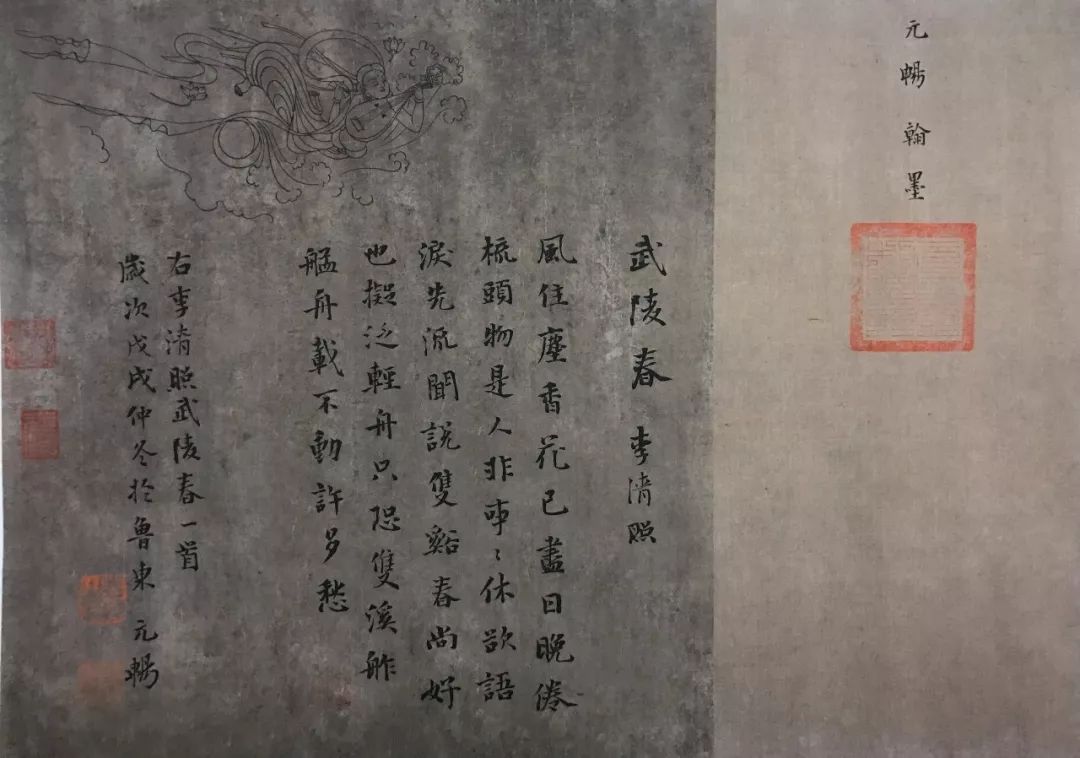 元暢翰墨
武陵春 李清照
風住塵香花已盡日晚倦
梳頭物是人非事〻休欲語
淚先流聞說雙谿春尚好
也擬泛輕舟只恐雙溪舴
艋舟載不動許多愁
右李清照武陵春一首
歲次戊戌仲冬於魯東 元暢